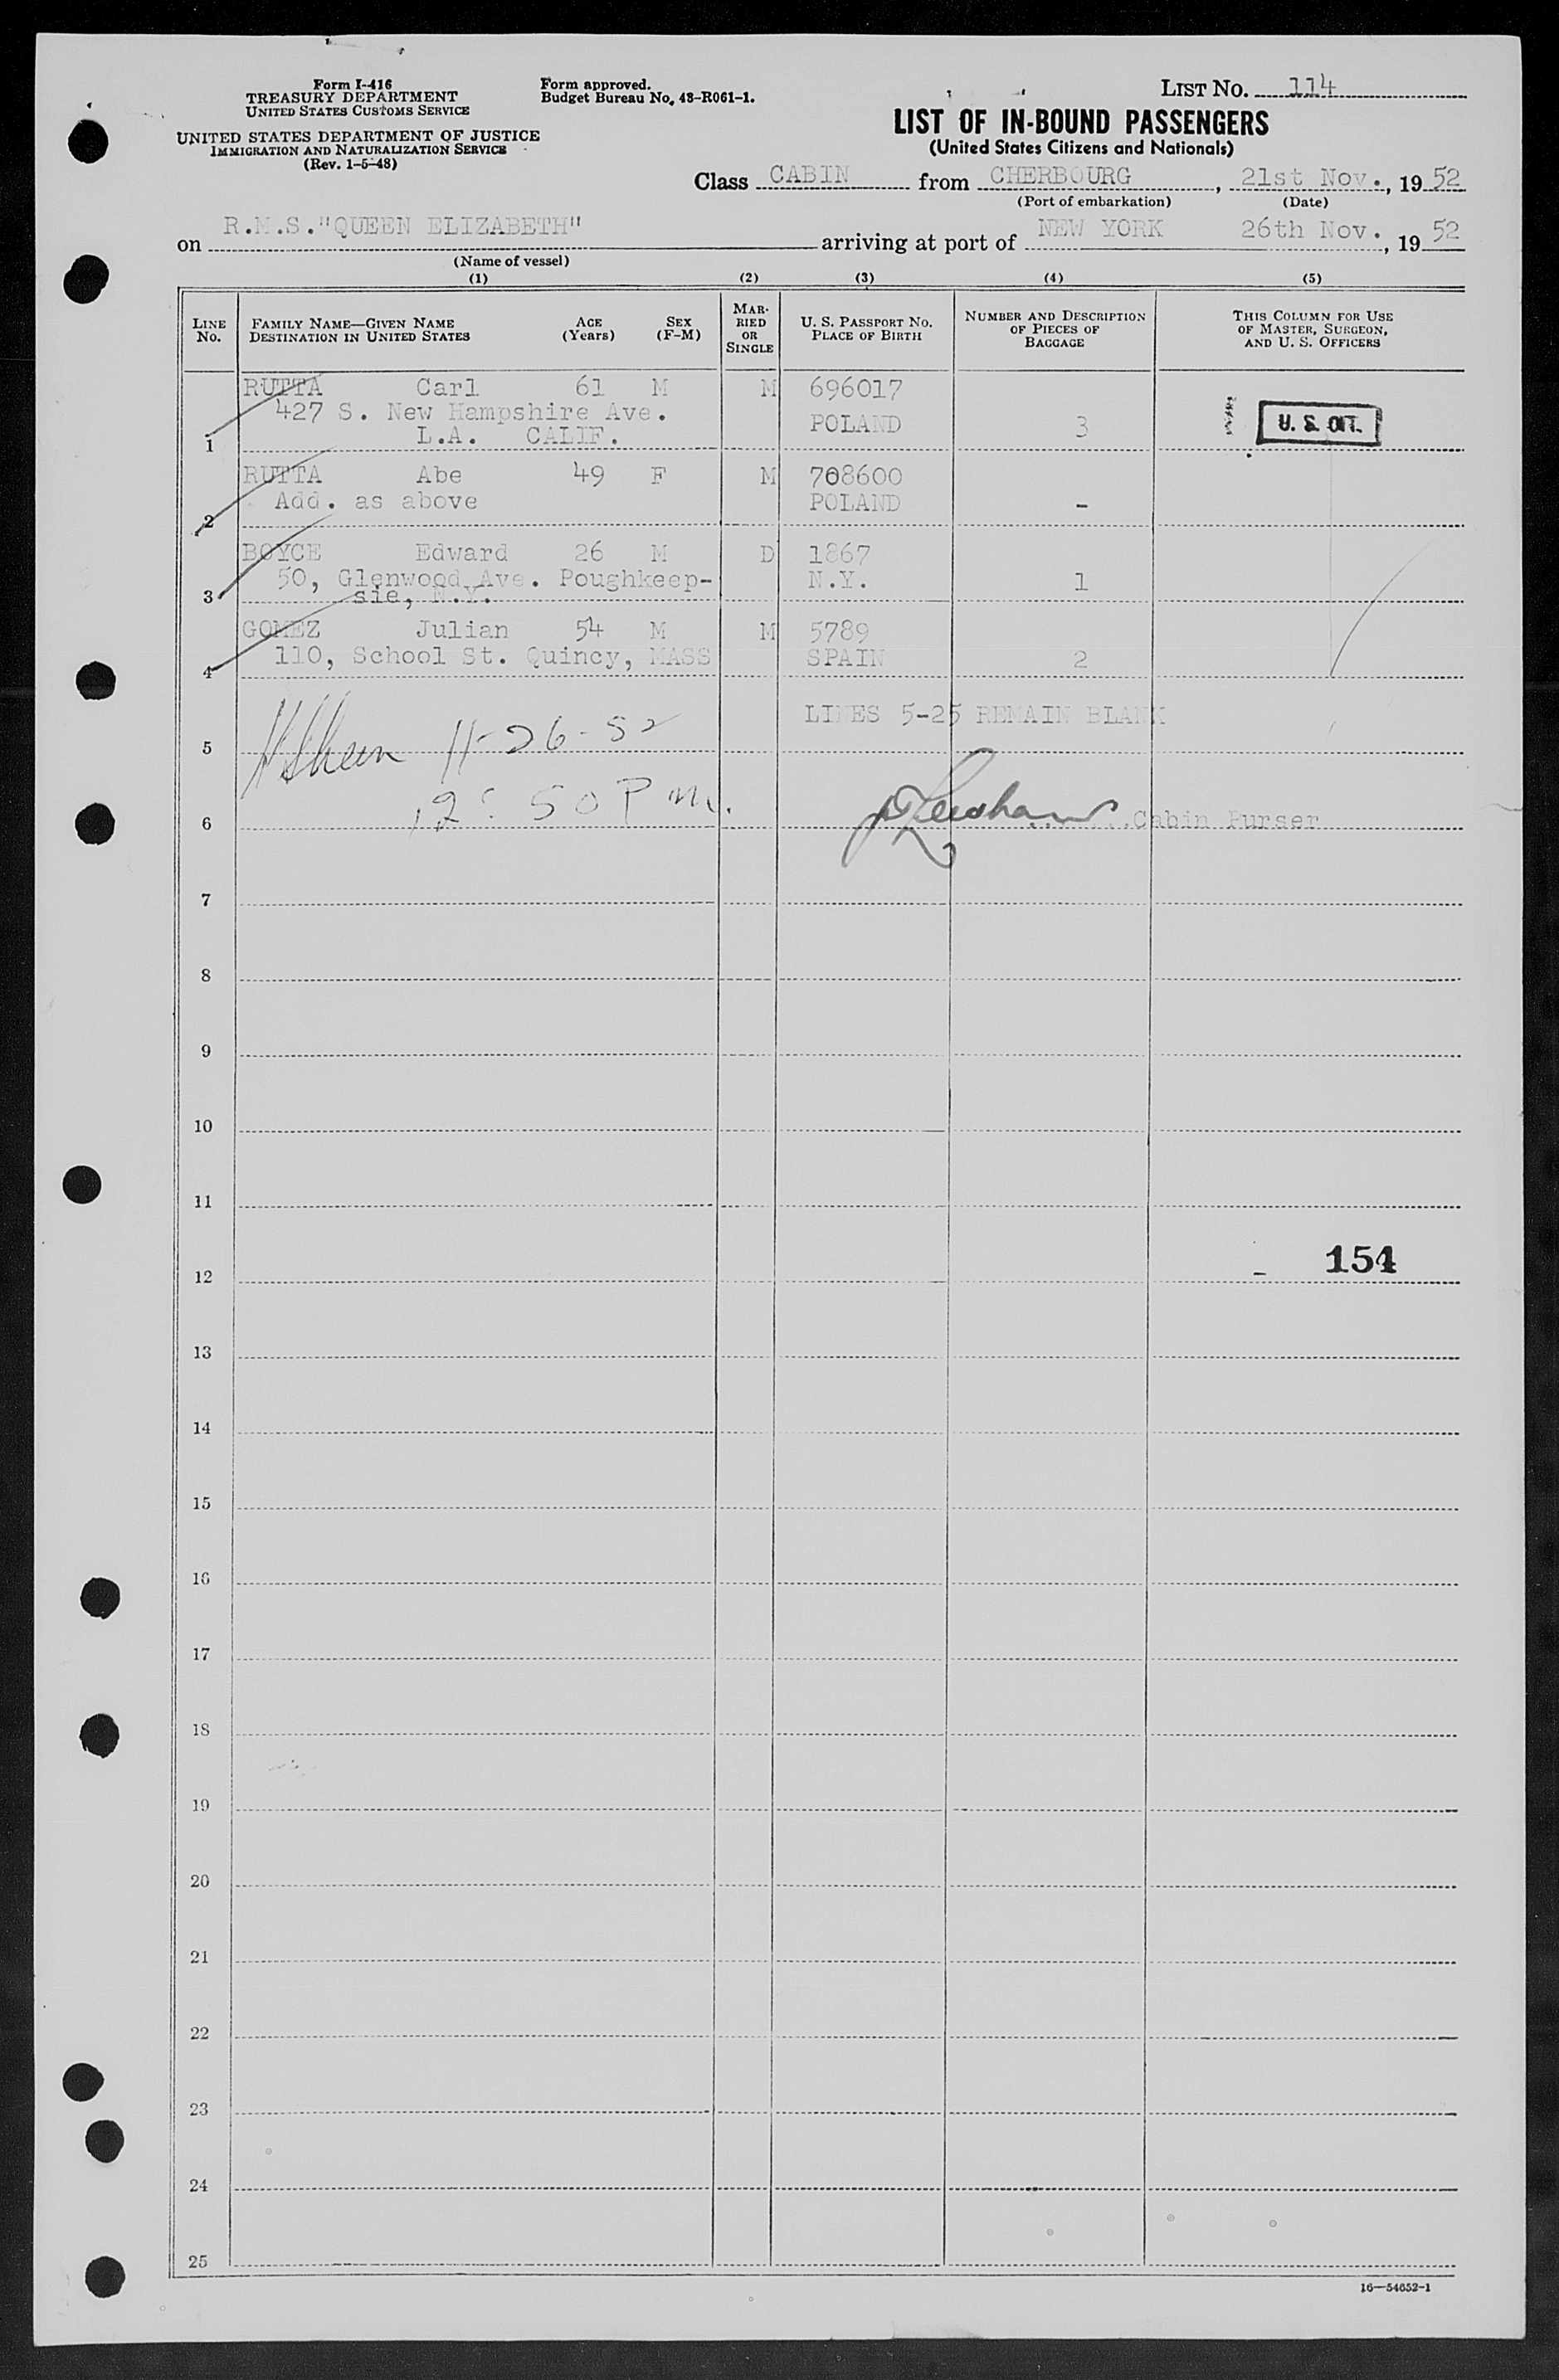 Form I-416
TREASURY DEPARTMENT
UNITED STATES CUSTOMS SERVICE
UNITED STATES DEPARTMENT OF JUSTICE
IMMIGRATION AND NATURALIZATION SERVICE
(Rev. 1-5-48)
Form approved.
Budget Bureau No. 43-R061-1.
LIST No. 114
LIST OF IN-BOUND PASSENGERS
(United States Citizens and Nationals)
Class CABIN from CHERBOURG, 21st Nov., 1952
(Port of embarkation) (Date)
on R.M.S."QUEEN ELIZABETH" arriving at port of NEW YORK 26th Nov., 1952
(Name of vessel)
(1) (2) (3) (4) (5)
LINE No.
FAMILY NAME—GIVEN NAME
DESTINATION IN UNITED STATES
AGE (Years)
SEX (F-M)
MARRIED OR SINGLE
U. S. PASSPORT No.
PLACE OF BIRTH
NUMBER AND DESCRIPTION OF PIECES OF BAGGAGE
THIS COLUMN FOR USE OF MASTER, SURGEON, AND U. S. OFFICERS
RUTTA Carl 61 M M 696017
427 S. New Hampshire Ave. POLAND 3 U. S. CIT.
1 L.A. CALIF.
RUTTA Abe 49 F M 708600
Add. as above POLAND -
2
BOYCE Edward 26 M D 1867
50, Glenwood Ave. Poughkeep- N.Y. 1
3 sie, N.Y.
GOMEZ Julian 54 M M 5789
4 110, School St. Quincy, MASS SPAIN 2
LINES 5-25 REMAIN BLANK
5 11-26-52
6 12:50 P m. Cabin Purser
7
8
9
10
11
154
12
13
14
15
16
17
18
19
20
21
22
23
24
25
16—54652-1